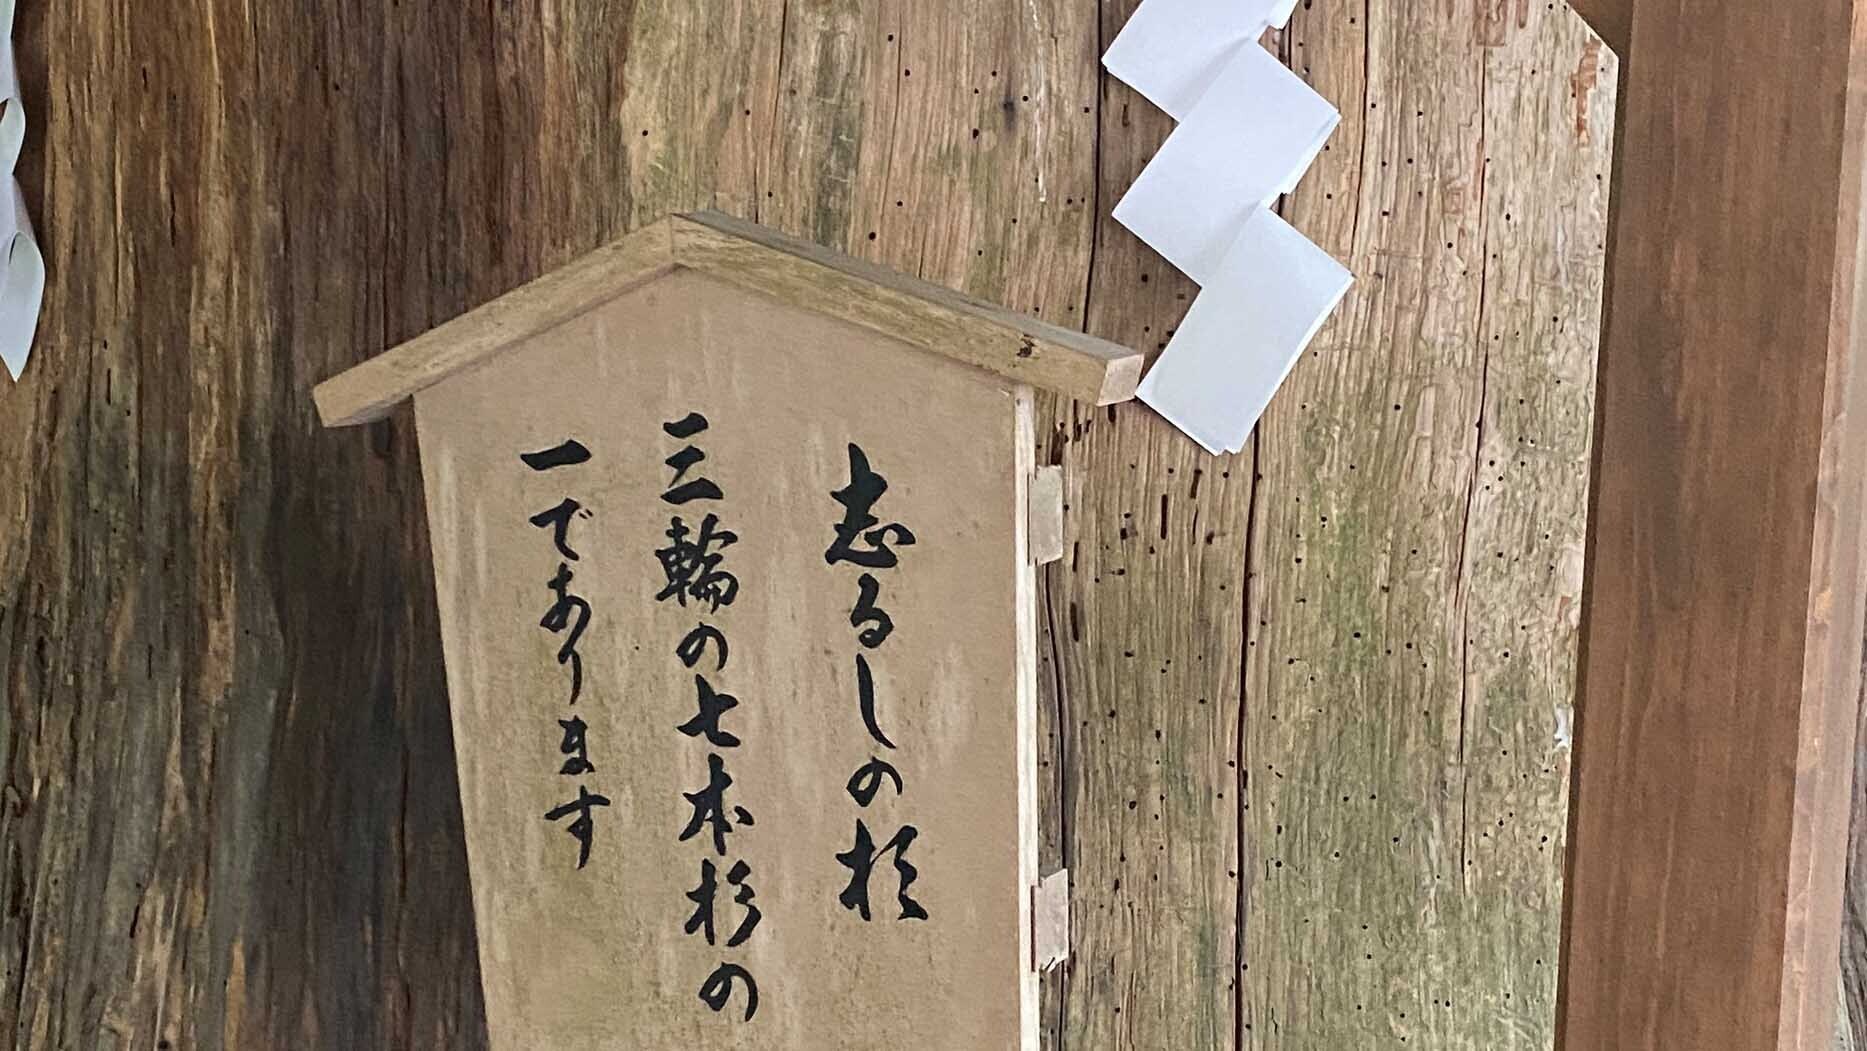 志るしの杉
三輪の七本杉の
一であります